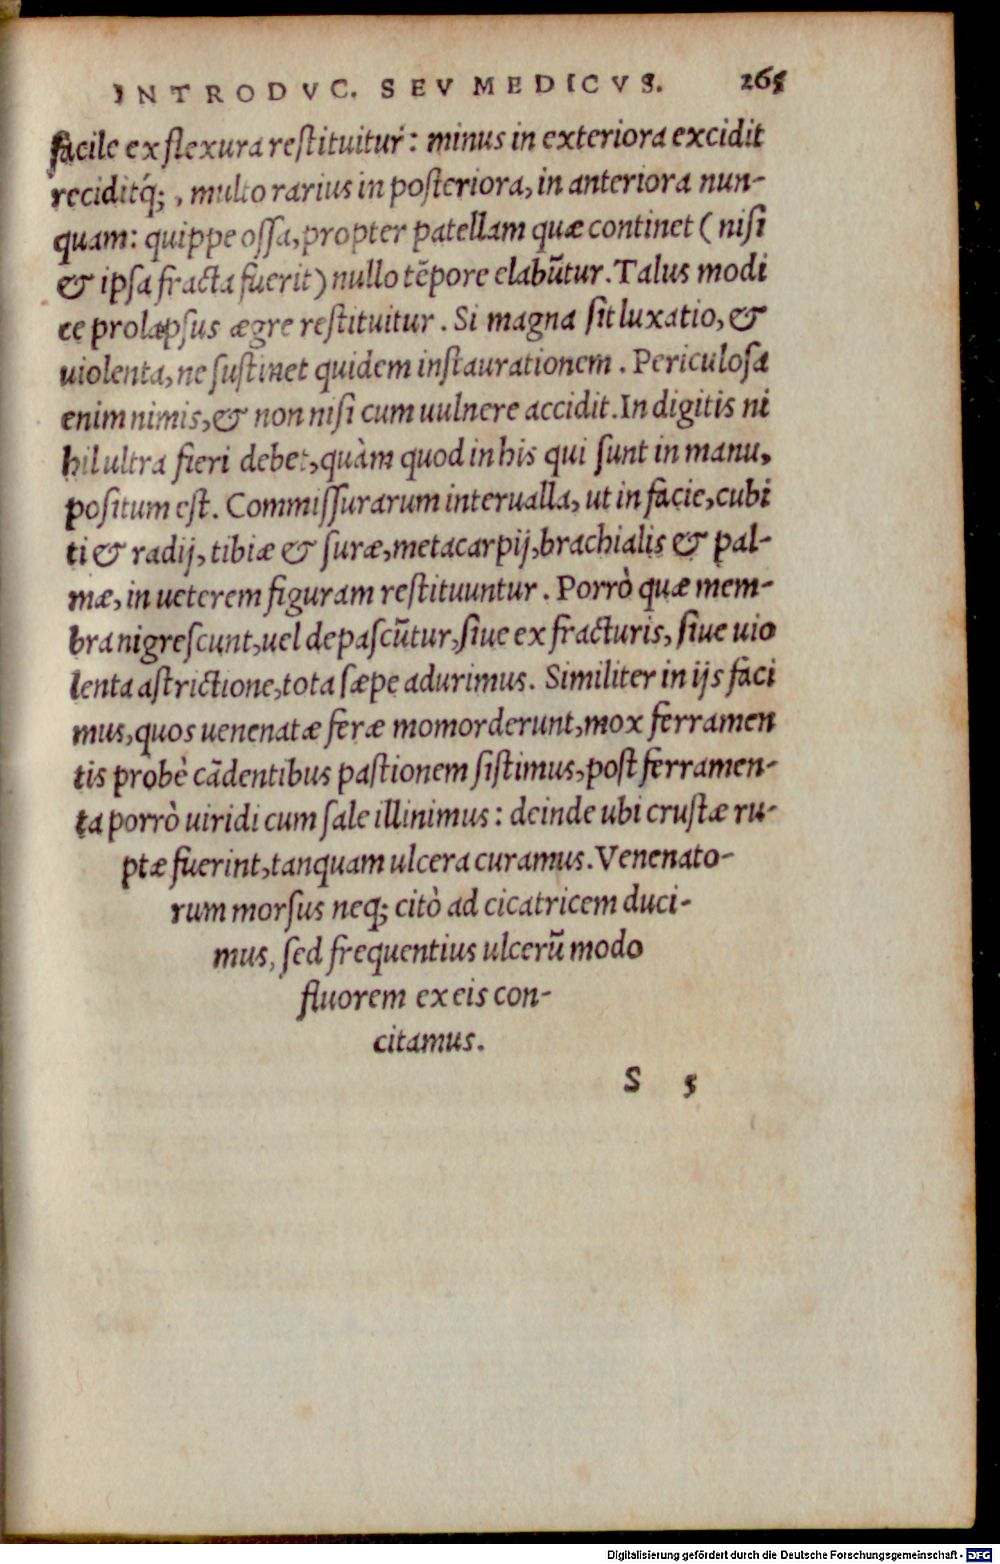 INTRODVC. SEV MEDICVS. 265
facile ex flexura reſtituitur: minus in exteriora excidit
reciditq́;, multo rarius in poſteriora, in anteriora nun-
quam: quippe oſſa, propter patellam quæ continet (niſi
& ipſa fracta fuerit) nullo tēpore elabūtur. Talus modi
ce prolapſus ægre reſtituitur. Si magna ſit luxatio, &
uiolenta, ne ſuſtinet quidem inſtaurationem. Periculoſa
enim nimis, & non niſi cum uulnere accidit. In digitis ni
hil ultra fieri debet, quàm quod in his qui ſunt in manu,
poſitum eſt. Commiſſurarum interualla, ut in facie, cubi
ti & radij, tibiæ & ſuræ, metacarpij, brachialis & pal-
mæ, in ueterem figuram reſtituuntur. Porrò quæ mem-
bra nigreſcunt, uel depaſcūtur, ſiue ex fracturis, ſiue uio
lenta aſtrictione, tota ſæpe adurimus. Similiter in ijs faci
mus, quos uenenatæ feræ momorderunt, mox ferramen
tis probè cādentibus paſtionem ſiſtimus, poſt ferramen-
ta porrò uiridi cum ſale illinimus: deinde ubi cruſtæ ru-
ptæ fuerint, tanquam ulcera curamus. Venenato-
rum morſus neq; citò ad cicatricem duci-
mus, ſed frequentius ulcerū modo
fluorem ex eis con-
citamus.
S 5
Digitalisierung gefördert durch die Deutsche Forschungsgemeinschaft - DFG